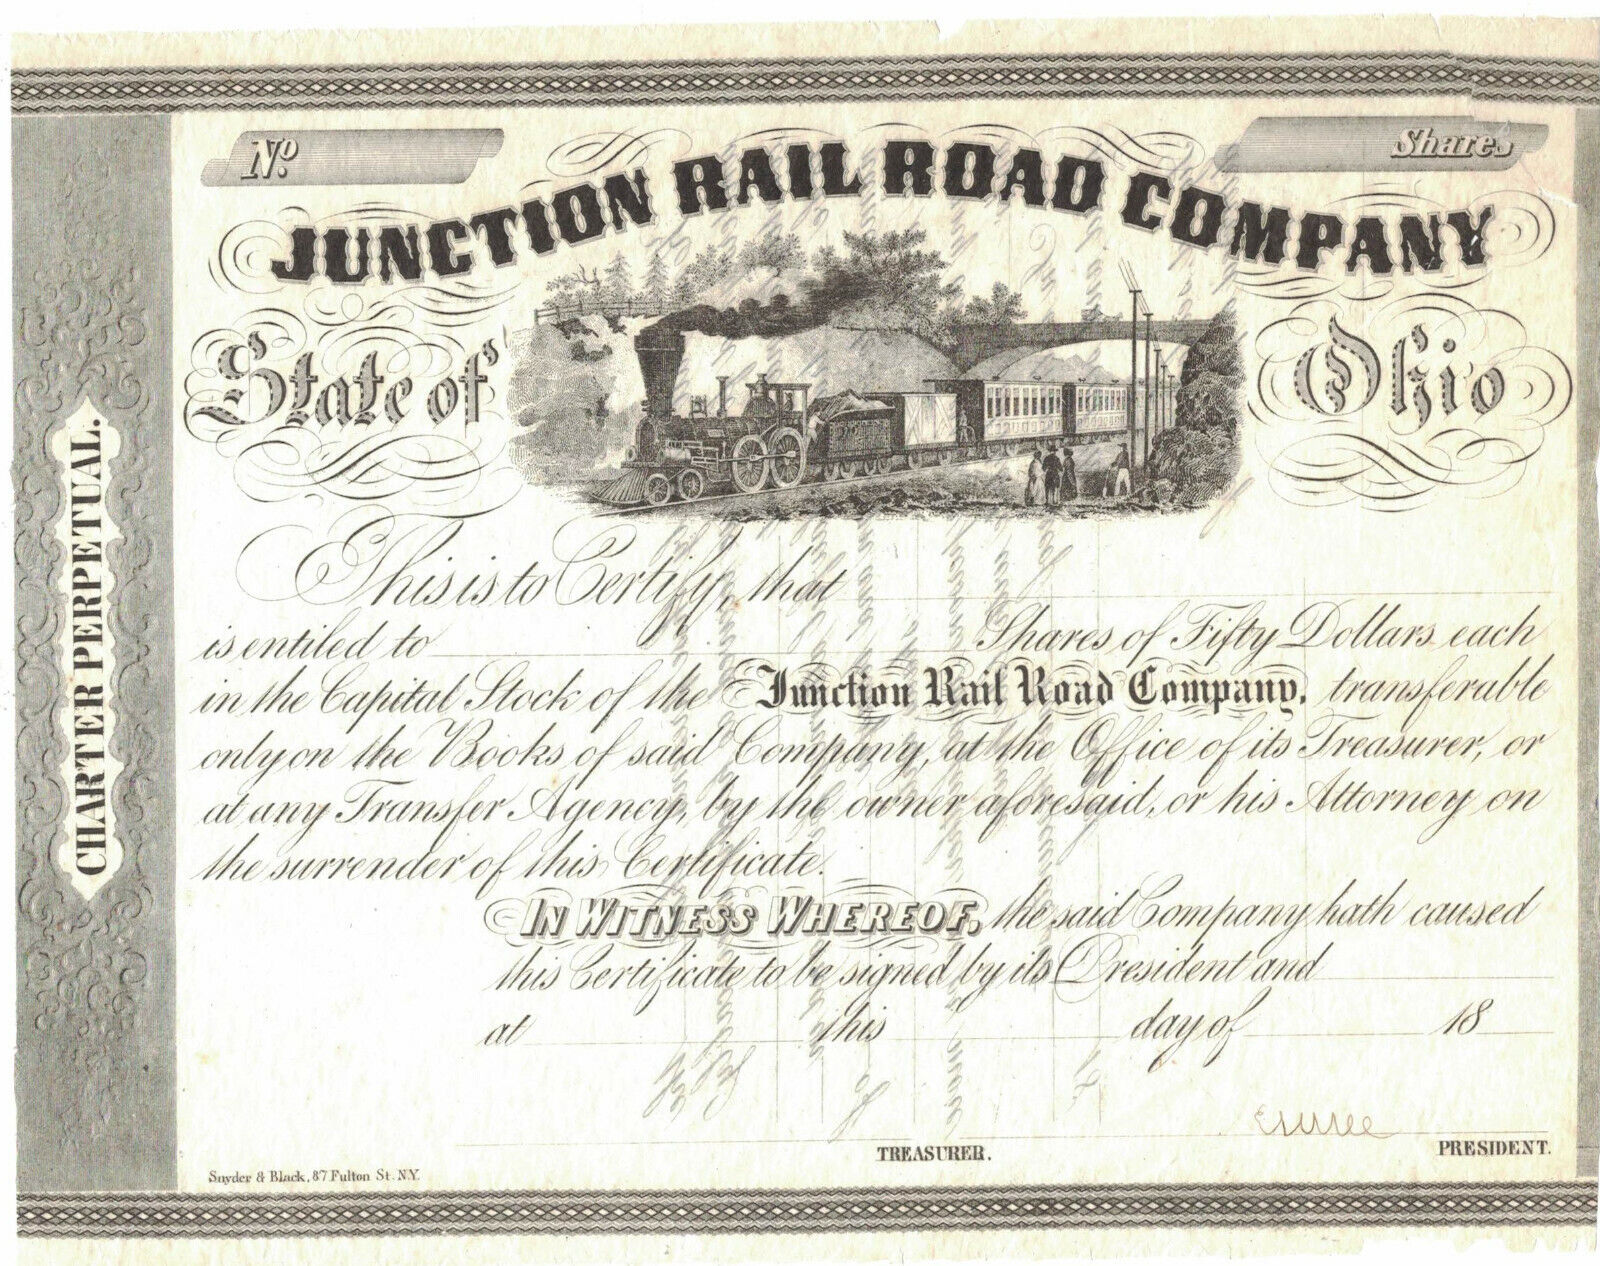 Nº.
Shares
JUNCTION RAIL ROAD COMPANY
State of Ohio
CHARTER PERPETUAL.
This is to Certify, that
is entiled to Shares of Fifty Dollars each
in the Capital Stock of the Junction Rail Road Company, transferable
only on the Books of said Company, at the Office of its Treasurer, or
at any Transfer Agency, by the owner aforesaid, or his Attorney on
the surrender of this Certificate.
IN WITNESS WHEREOF, the said Company hath caused
this Certificate to be signed by its President and
at this day of 18
TREASURER.
PRESIDENT.
Snyder & Black, 87 Fulton St. N.Y.